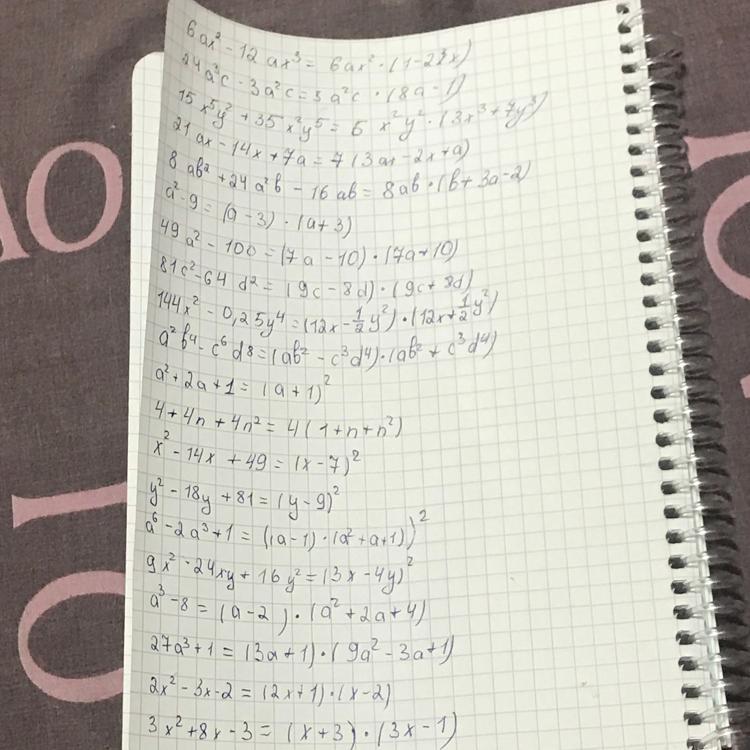 6ax² - 12ax³ = 6ax² · (1-2x)
24a³c - 3a²c = 3a²c · (8a-1)
15x⁵y² + 35x²y⁵ = 5x²y² · (3x³+7y³)
21ax - 14x + 7a = 7(3ax-2x+a)
8ab² + 24a²b - 16ab = 8ab · (b+3a-2)
a² - 9 = (a-3) · (a+3)
49a² - 100 = (7a-10) · (7a+10)
81c² - 64d² = (9c-8d) · (9c+8d)
144x² - 0,25y⁴ = (12x-½y²) · (12x+½y²)
a²b⁴ - c⁶d⁸ = (ab² - c³d⁴) · (ab² + c³d⁴)
a² + 2a + 1 = (a+1)²
4 + 4n + 4n² = 4(1+n+n²)
x² - 14x + 49 = (x-7)²
y² - 18y + 81 = (y-9)²
a⁶ - 2a³ + 1 = ((a-1) · (a²+a+1))²
9x² - 24xy + 16y² = (3x-4y)²
a³ - 8 = (a-2) · (a²+2a+4)
27a³ + 1 = (3a+1) · (9a²-3a+1)
2x² - 3x - 2 = (2x+1) · (x-2)
3x² + 8x - 3 = (x+3) · (3x-1)